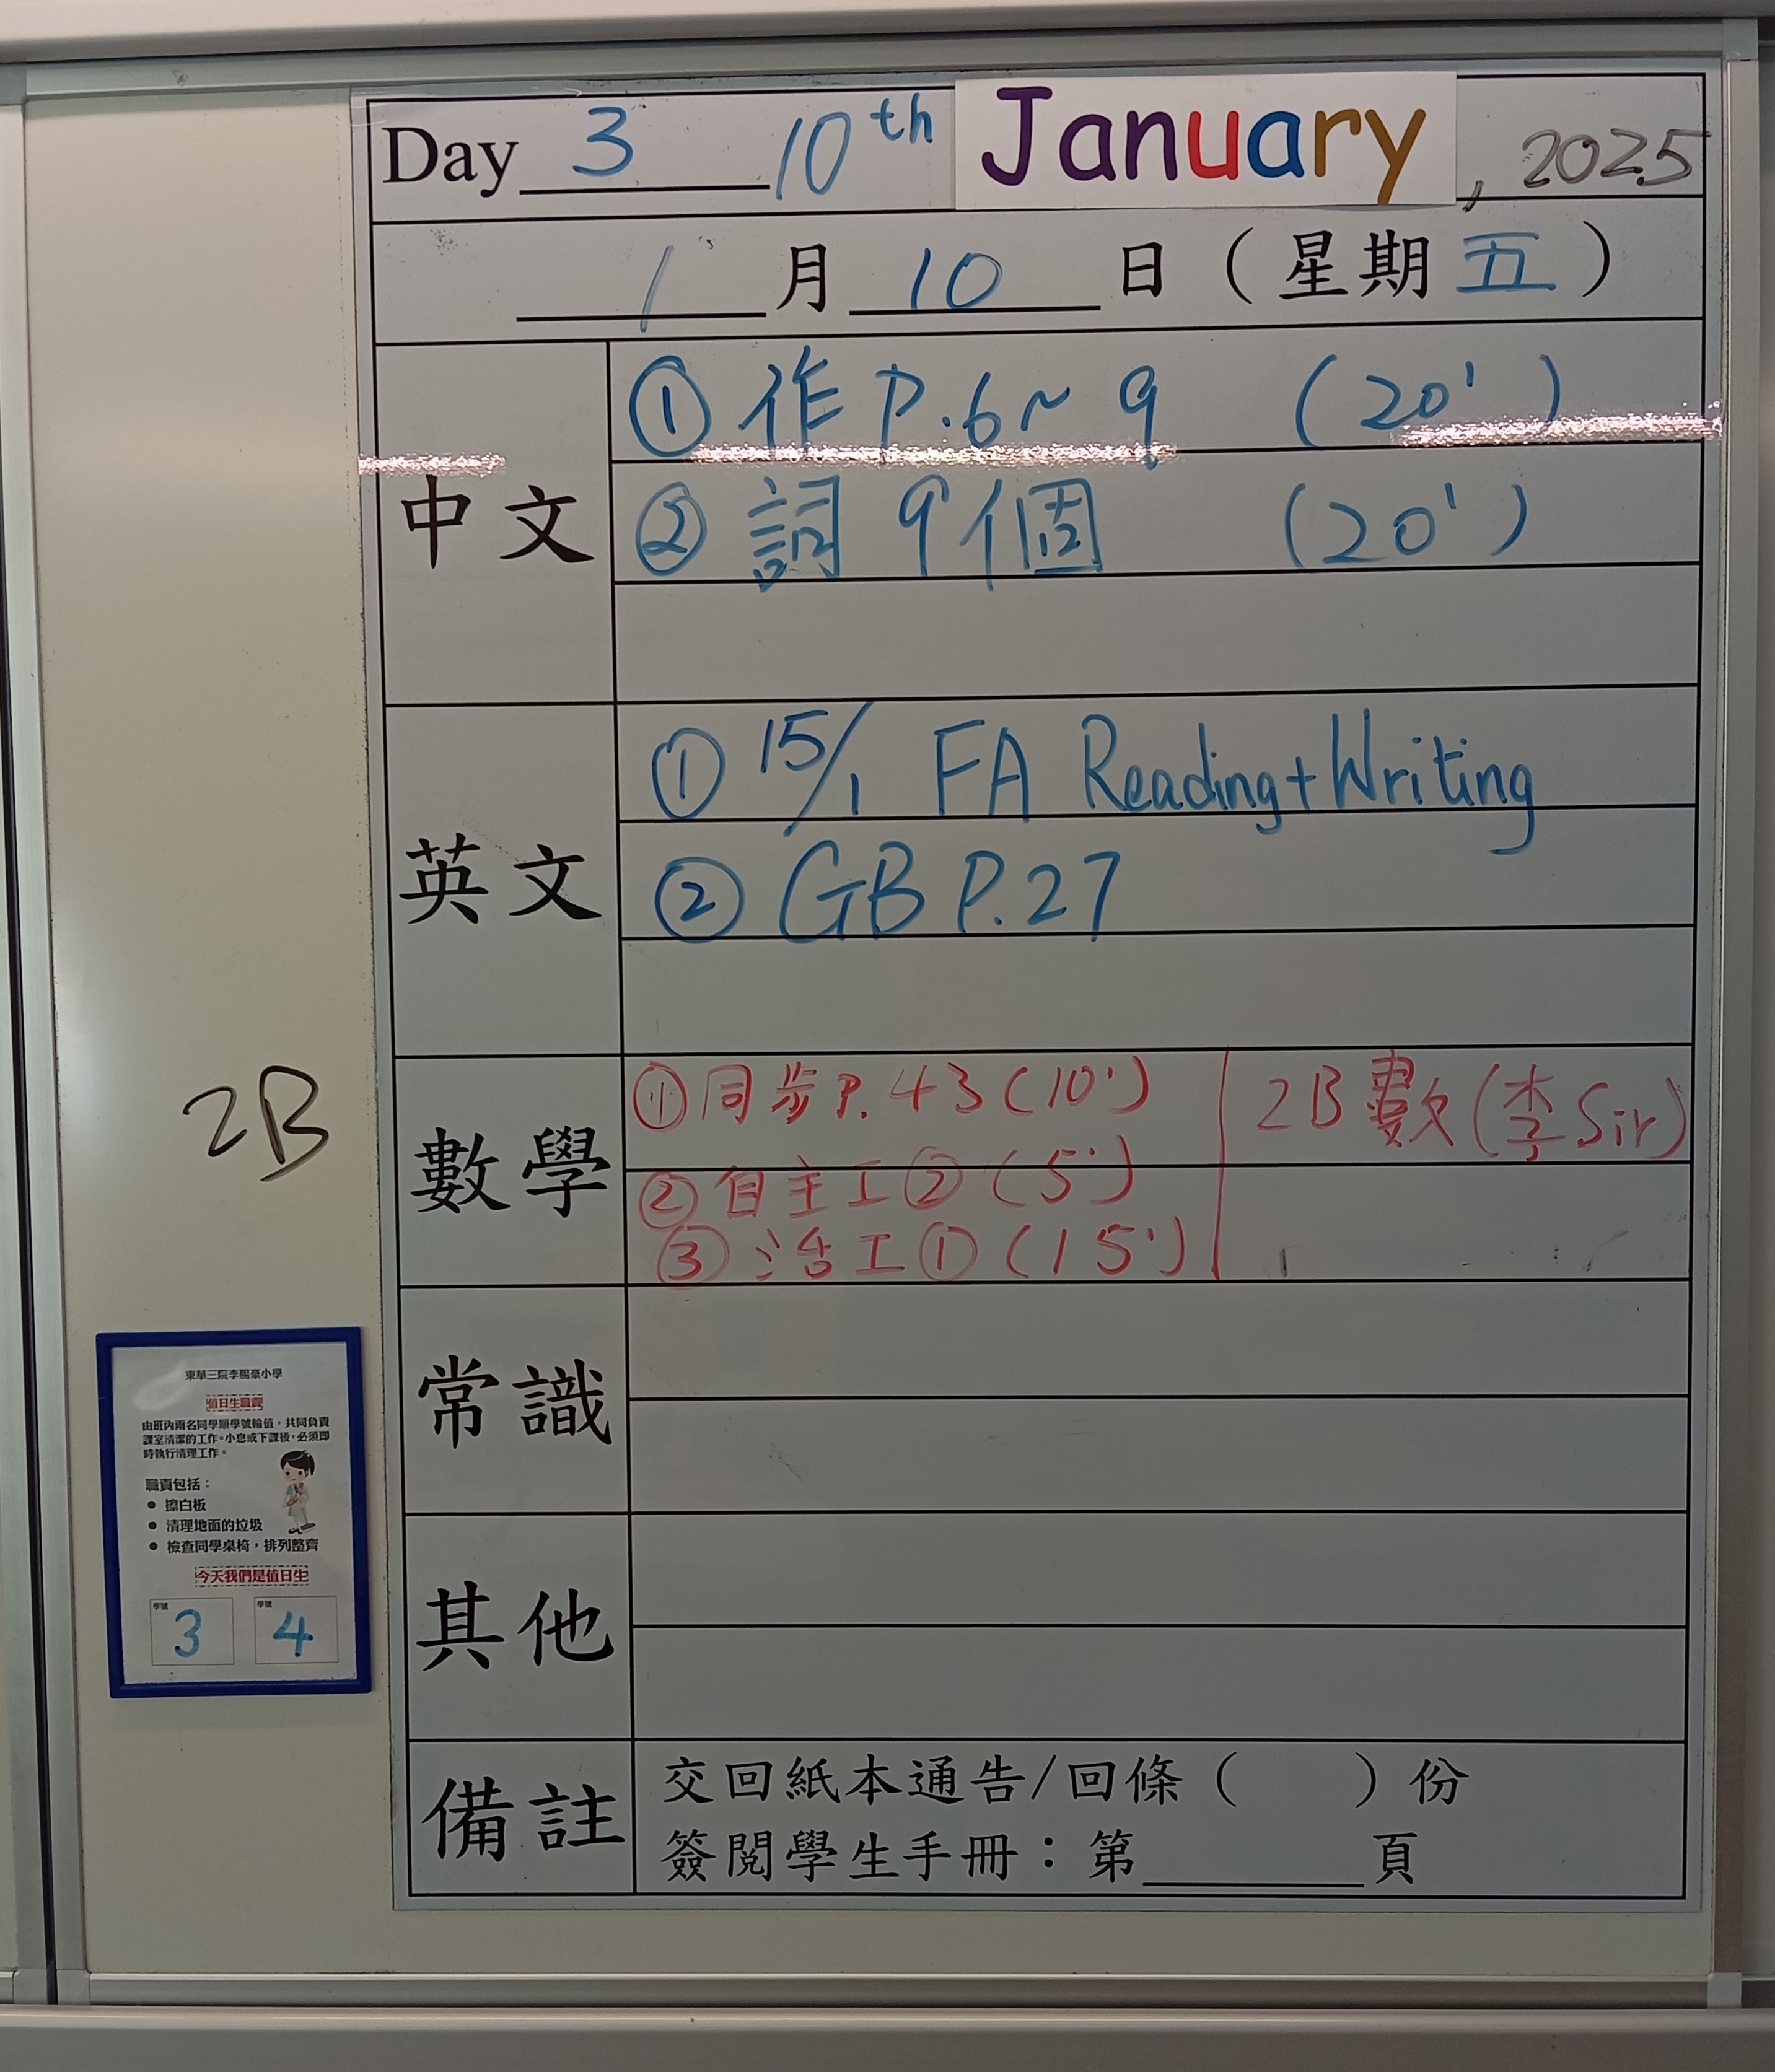 Day 3 10th January, 2025
1 月 10 日 ( 星期 五 )
中文
① 作 P.6~9 (20')
② 詞 9個 (20')
英文
① 15/1 FA Reading+Writing
② GB P.27
數學
① 同步 P.43 (10')
② 自主工② (5')
③ 活工① (15')
2B 數 (李Sir)
常識
其他
備註
交回紙本通告/回條 ( ) 份
簽閱學生手冊：第______頁
2B
東華三院李賜豪小學
值日生職責
由班內兩名同學順學號輪值，共同負責
課室清潔的工作。小息或下課後，必須即
時執行清理工作。
職責包括：
● 擦白板
● 清理地面的垃圾
● 檢查同學桌椅，排列整齊
今天我們是值日生
學號 3 學號 4